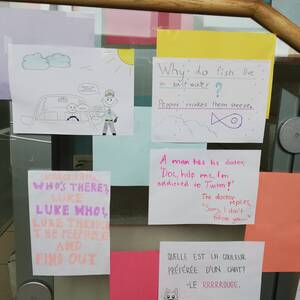 Why do fish live
in salt water
?
Pepper makes them sneeze.
A man tells his doctor,
"Doc, help me, I'm
addicted to Twitter!"
The doctor
replies,
"Sorry, I don't
follow you..."
KNOCK KNOCK
WHO'S THERE?
LUKE
LUKE WHO?
LUKE THROUGH
THE PEEPHOLE
AND
FIND OUT
QUELLE EST LA COULEUR
PRÉFÉRÉE D'UN CHAT?
-LE RRRROUGE.